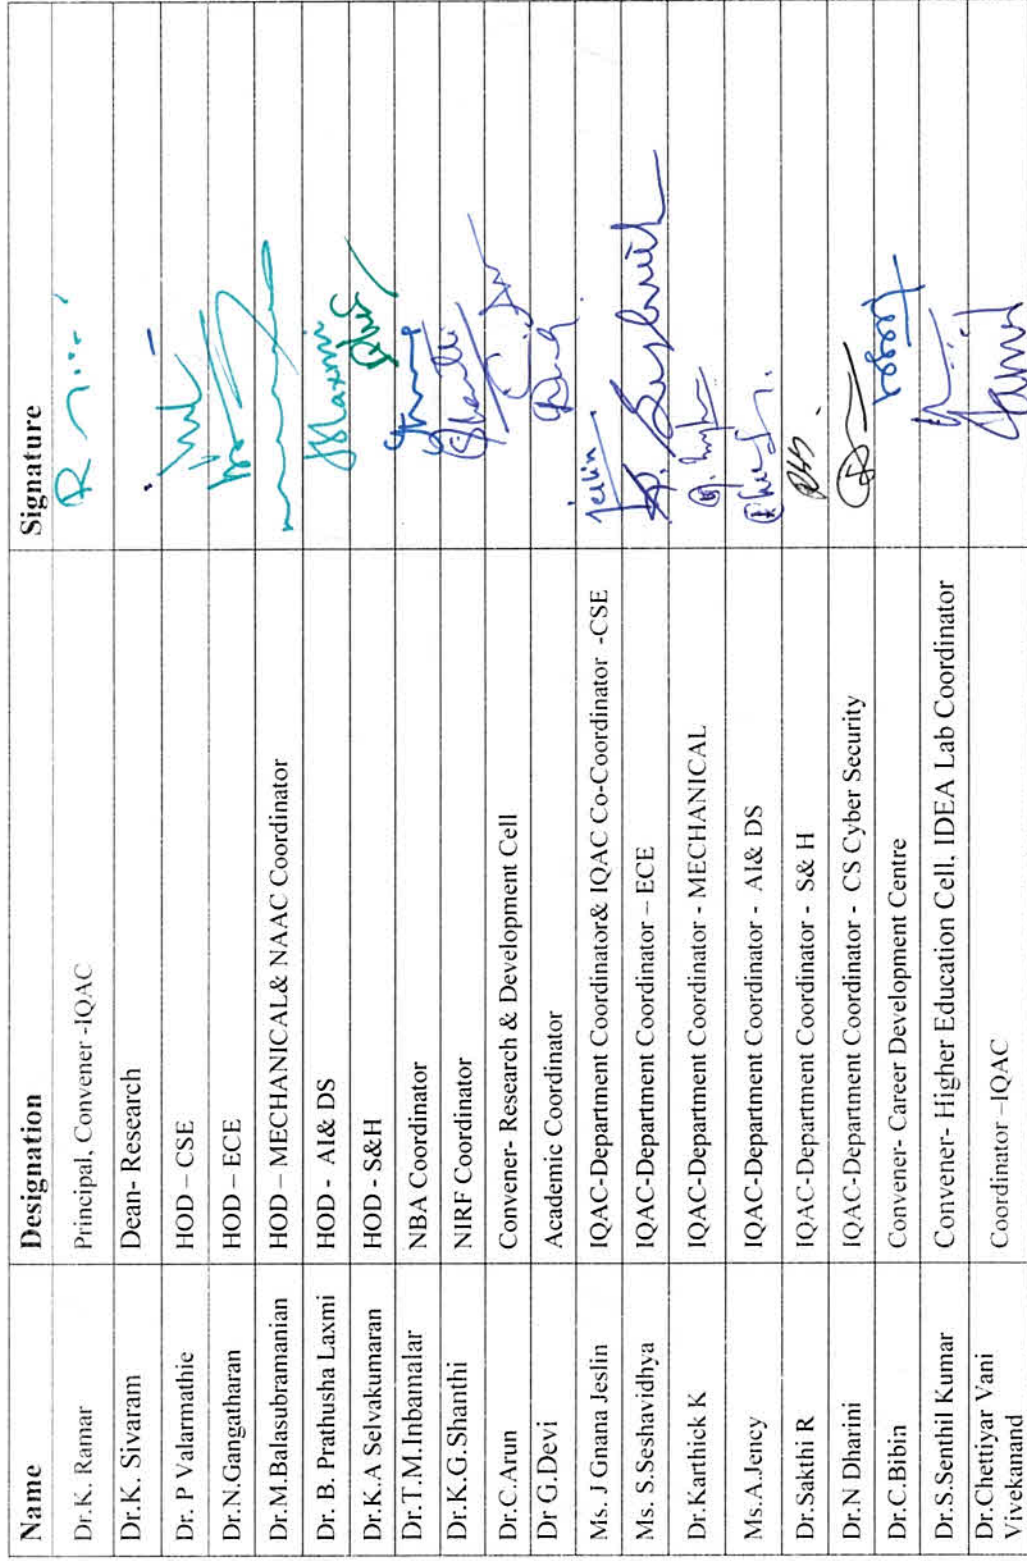 Name Designation Signature
Dr.K. Ramar Principal, Convener -IQAC
Dr.K. Sivaram Dean- Research
Dr. P Valarmathie HOD – CSE
Dr.N.Gangatharan HOD – ECE
Dr.M.Balasubramanian HOD – MECHANICAL& NAAC Coordinator
Dr. B. Prathusha Laxmi HOD - AI& DS
Dr.K.A Selvakumaran HOD - S&H
Dr.T.M.Inbamalar NBA Coordinator
Dr.K.G.Shanthi NIRF Coordinator
Dr.C.Arun Convener- Research & Development Cell
Dr G.Devi Academic Coordinator
Ms. J Gnana Jeslin IQAC-Department Coordinator& IQAC Co-Coordinator -CSE Jeslin
Ms. S.Seshavidhya IQAC-Department Coordinator – ECE
Dr.Karthick K IQAC-Department Coordinator - MECHANICAL
Ms.A.Jency IQAC-Department Coordinator - AI& DS
Dr.Sakthi R IQAC-Department Coordinator - S& H
Dr.N Dharini IQAC-Department Coordinator - CS Cyber Security
Dr.C.Bibin Convener- Career Development Centre
Dr.S.Senthil Kumar Convener- Higher Education Cell, IDEA Lab Coordinator
Dr.Chettiyar Vani
Vivekanand Coordinator –IQAC